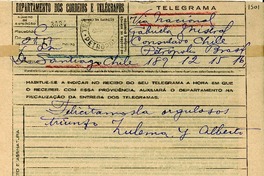 DEPARTAMENTO DOS CORREIOS E TELÉGRAFOS
TELEGRAMA
Via Nacional
Gabriela Mistral
Consulado Chile
Petropolis Brasil
De Santiago Chile 189 12 15 16
HABITUE-SE A INDICAR NO RECIBO DO SEU TELEGRAMA A HORA EM QUE
O RECEBER. COM ESSA PROVIDÊNCIA, AUXILIARÁ O DEPARTAMENTO NA
FISCALIZAÇÃO DA ENTREGA DOS TELEGRAMAS.
Felicitamosla orgulosos
triunfo
Zulema y Alberto